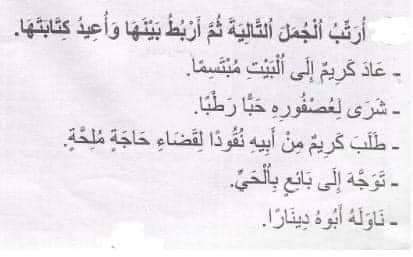 أُرَتِّبُ اُلْجُمَلَ اُلتَّالِيَةَ ثُمَّ أَرْبِطُ بَيْنَهَا وَأُعِيدُ كِتَابَتَهَا.
- عَادَ كَرِيمٌ إِلَى اُلْبَيْتِ مُبْتَسِمًا.
- شَرَى لِعُصْفُورِهِ حَبًّا رَطْبًا.
- طَلَبَ كَرِيمٌ مِنْ أَبِيهِ نُقُودًا لِقَضَاءِ حَاجَةٍ مُلِحَّةٍ.
- تَوَجَّهَ إِلَى بَائِعٍ بِاُلْحَيِّ.
- نَاوَلَهُ أَبُوهُ دِينَارًا.